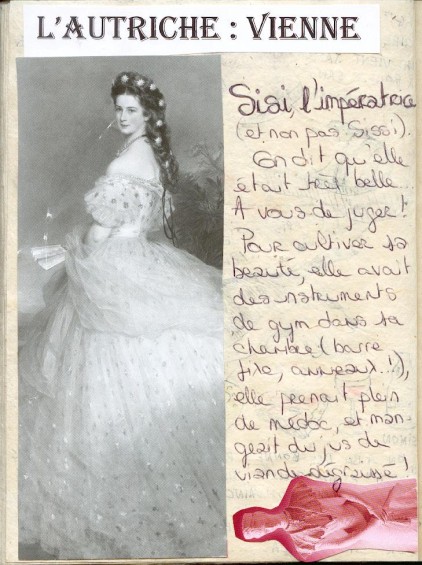 L'AUTRICHE : VIENNE
Sisi, l'impératrice
(et non pas Sissi).
On dit qu'elle
était très belle...
A vous de juger !
Pour cultiver sa
beauté, elle avait
des instruments
de gym dans sa
chambre (barre
fixe, anneaux..!),
elle prenait plein
de médoc, et man-
geait du jus de
viande dégraissé !